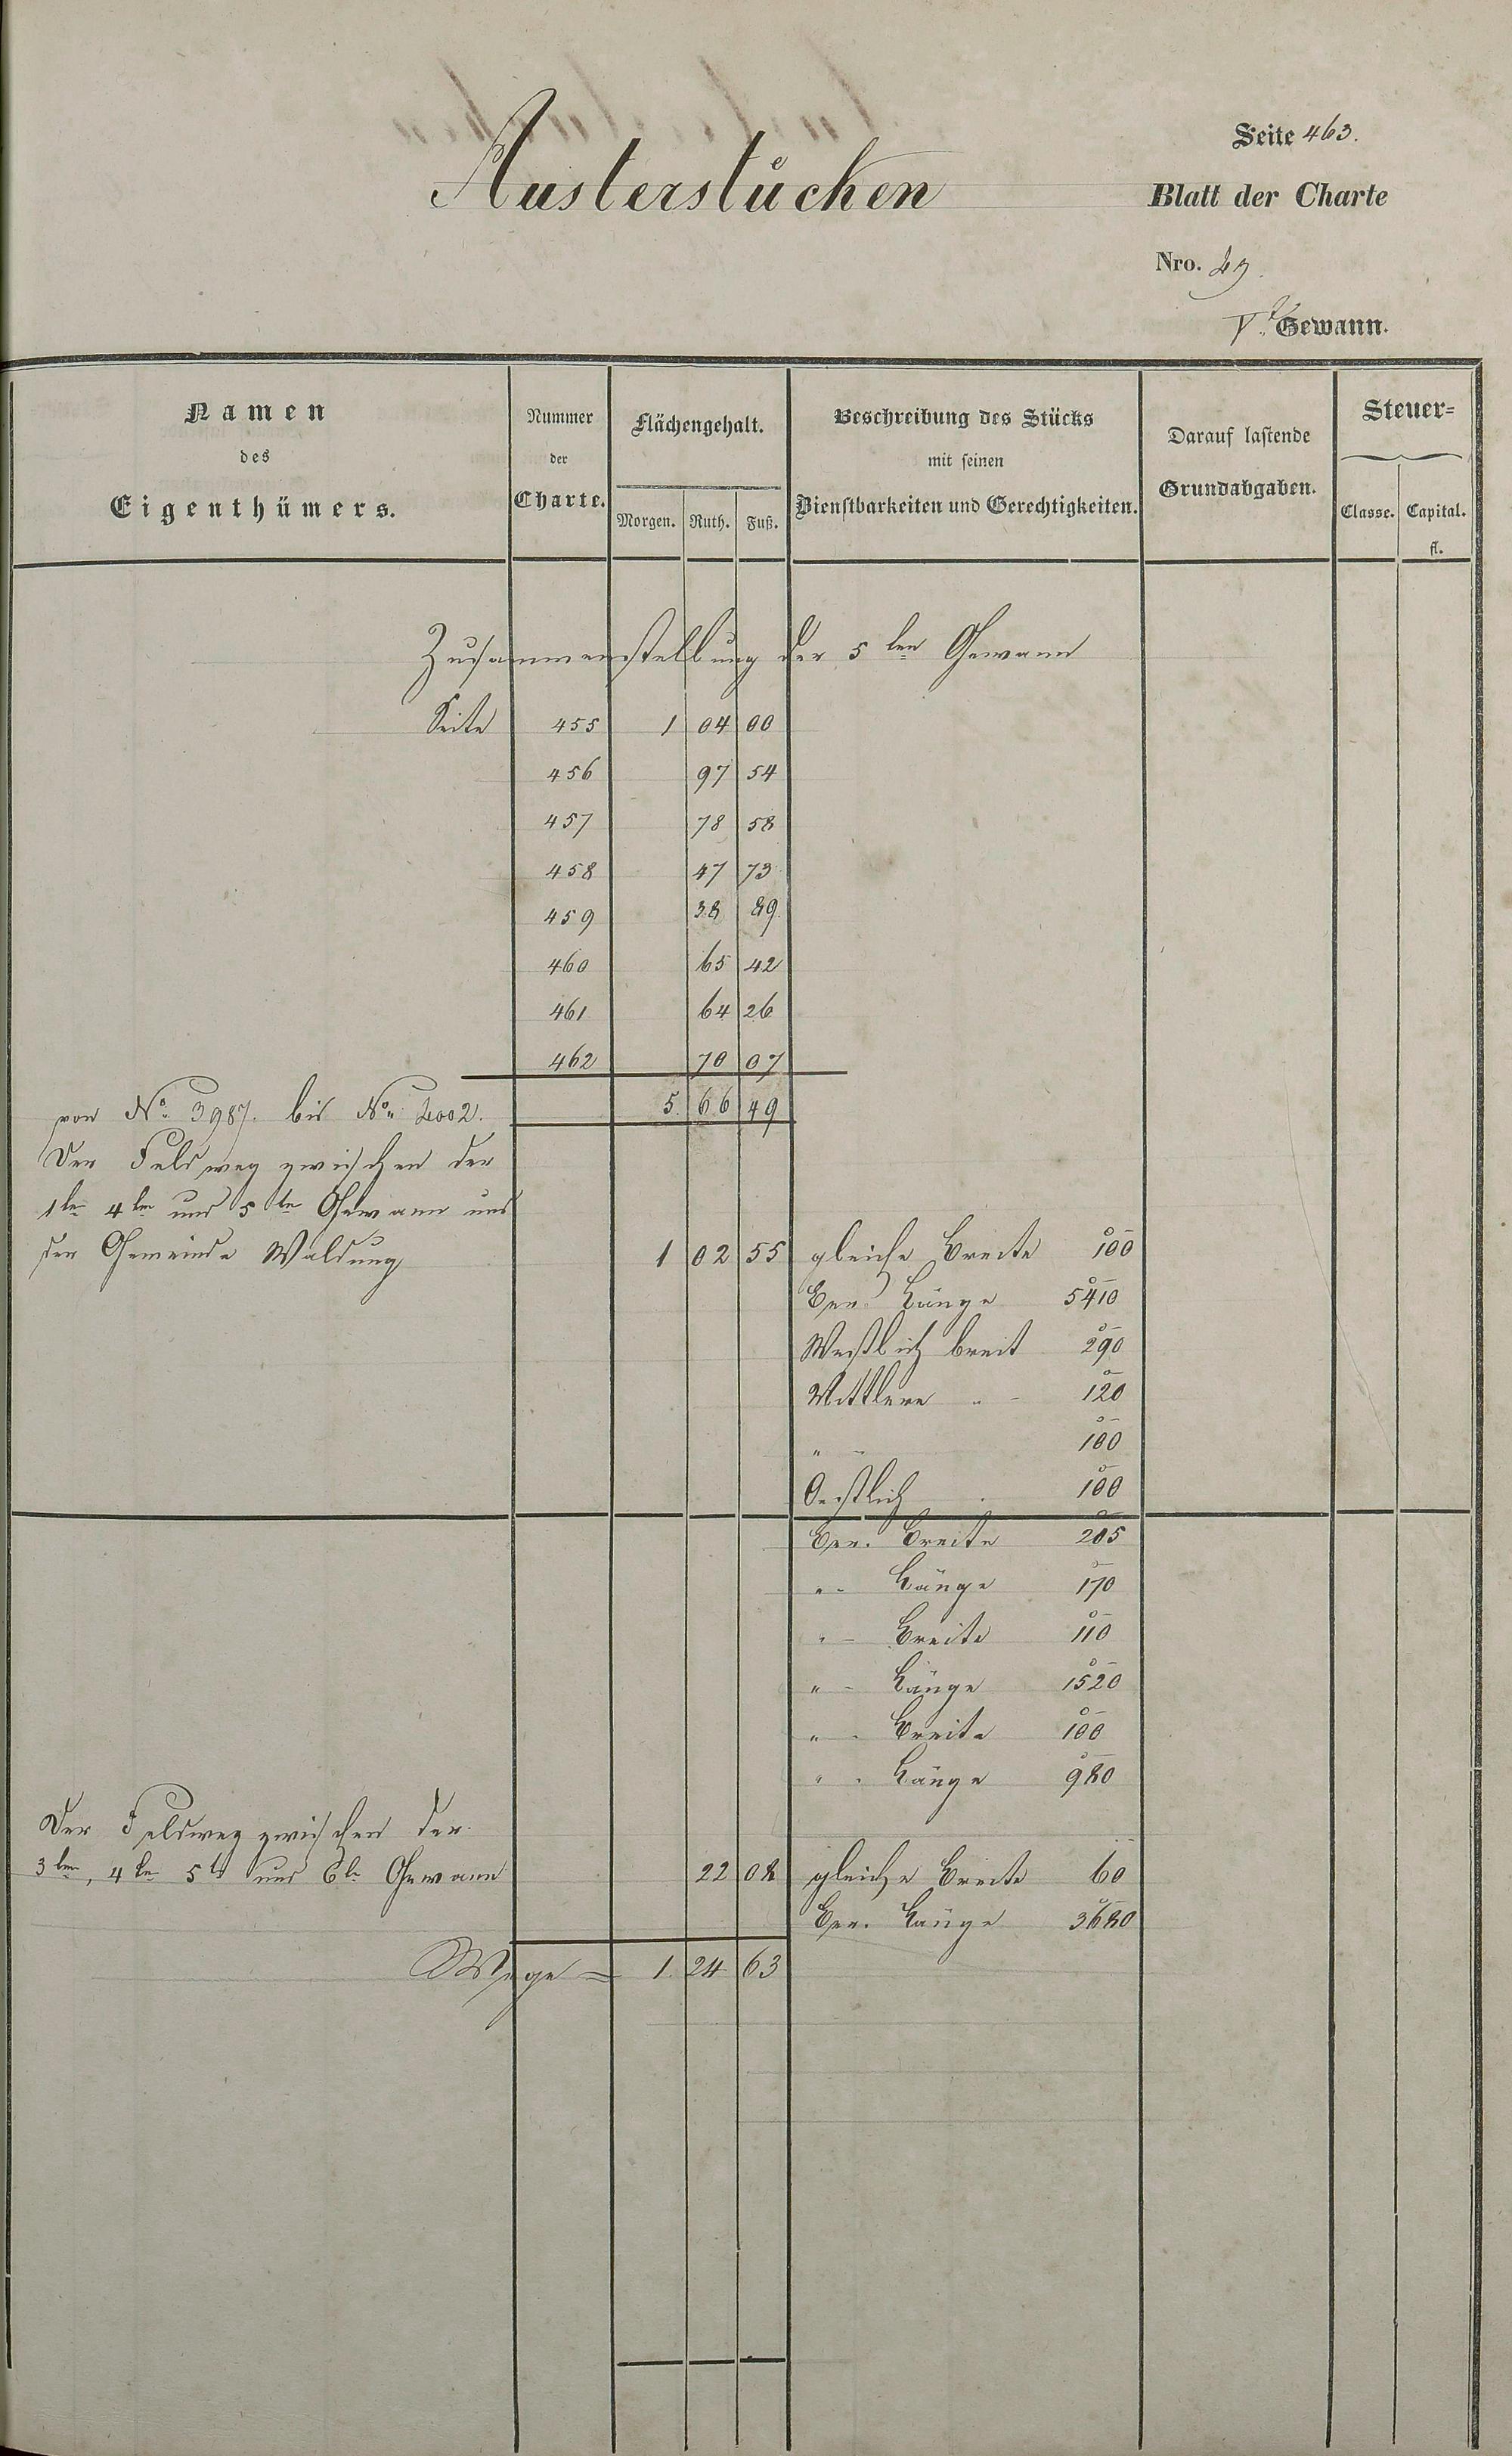 Austerstücken
Seite 463.
Blatt der Charte
Nro. 29.
V.te Gewann.
Namen des Eigenthümers.
Nummer der Charte.
Flächengehalt.
Morgen. Ruth. Fuß.
Beschreibung des Stücks mit seinen Dienstbarkeiten und Gerechtigkeiten.
Darauf lastende Grundabgaben.
Steuer=
Classe. Capital. fl.
Zusammenstellung der 5ten Gewann
Seite 455 1 04 00
456 97 54
457 78 58
458 47 73
459 38 89
460 65 42
461 64 26
462 70 07
von No. 3987. bis No. 4002. 5. 66 49
Der Feldweg zwischen der
1ten 4ten und 5ten Gewann und
der Gemeinde Waldung 1 02 55 gleiche Breite 100
Ger. Länge 5410
Westlich breit 290
Mittlere " 120
" 100
Oestlich 100
Ger. Breite 205
" Länge 170
" Breite 110
" Länge 1520
" Breite 100
" Länge 980
Der Feldweg zwischen der
3ten, 4ten 5ten und 6ten Gewann 22 08 gleiche Breite 60
Ger. Länge 3680
Wege = 1. 24 63